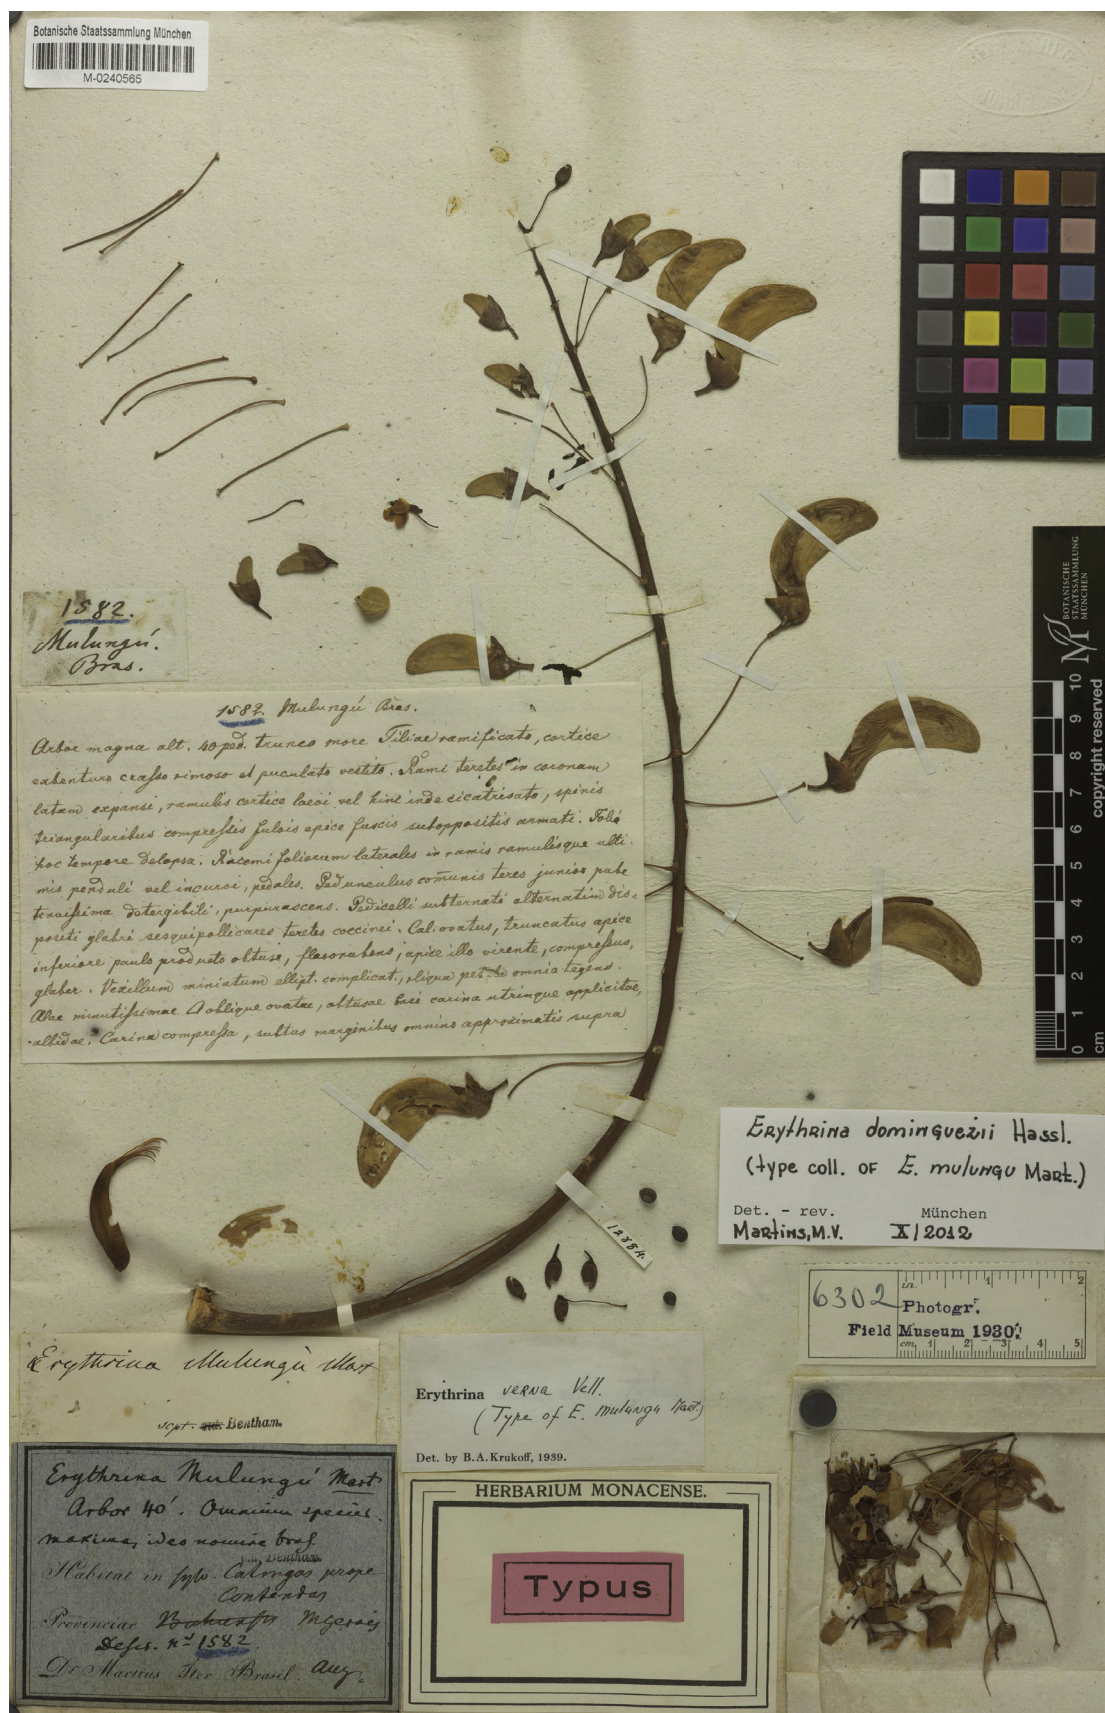 Botanische Staatssammlung München
M-0240565
copyright reserved
BOTANISCHE
STAATSSAMMLUNG
MÜNCHEN
10
9
8
7
6
5
4
3
2
1
0
cm
1582.
Mulungú.
Bras.
1582. Mulungú Bras.
Arbor magna alt. 40 ped. trunco more Tiliae ramificato, cortice
exsenturo crasso rimoso et puculato vestito. Rami teretes in coronam
latam expansi, ramulis cortice laevi vel hinc inde cicatrisato, spinis
triangularibus compressis fulvis apice fuscis suboppositis armati. Folia
hoc tempore delapsa. Racemi foliorum laterales in ramis ramulisque ulti-
mis penduli vel incurvi, pedales. Pedunculus com̄unis teres junior pube
tenuissima detergibili, purpurascens. Pedicelli subternati alternatim dis-
positi glabri sesquipollicares teretes coccinei. Cal. ovatus, truncatus apice
inferiore paulo producto obtuso, flavorubens, apice illo virente, compressus,
glaber. Vexillum miniatum ellipt. complicat., reliqua petala omnia tegens.
Alae minutissimae oblique ovatae, obtusae basi carina utrinque applicitae,
albidae. Carina compressa, subtus marginibus omnino approximatis supra
Erythrina dominguezii Hassl.
(type coll. of E. mulungu Mart.)
Det. - rev. München
Martins, M.V. X/2012
12884.
6302
in. 1 2
Photogr.
Field Museum 1930.
cm 1 2 3 4 5
Erythrina Mulungù Mart
scpt. Bentham
Erythrina verna Vell.
(Type of E. mulungu Mart.)
Det. by B.A.Krukoff, 1939.
Erythrina Mulungú Mart
Arbor 40'. Omnium specier.
maxima, ideo nomine bras.
Bentham
Habitat in sylv. Catingas prope
Contendas
Provinciae Mgeraes
Descr. nº 1582.
Dr Martius Iter Brasil. Aug.
HERBARIUM MONACENSE.
Typus